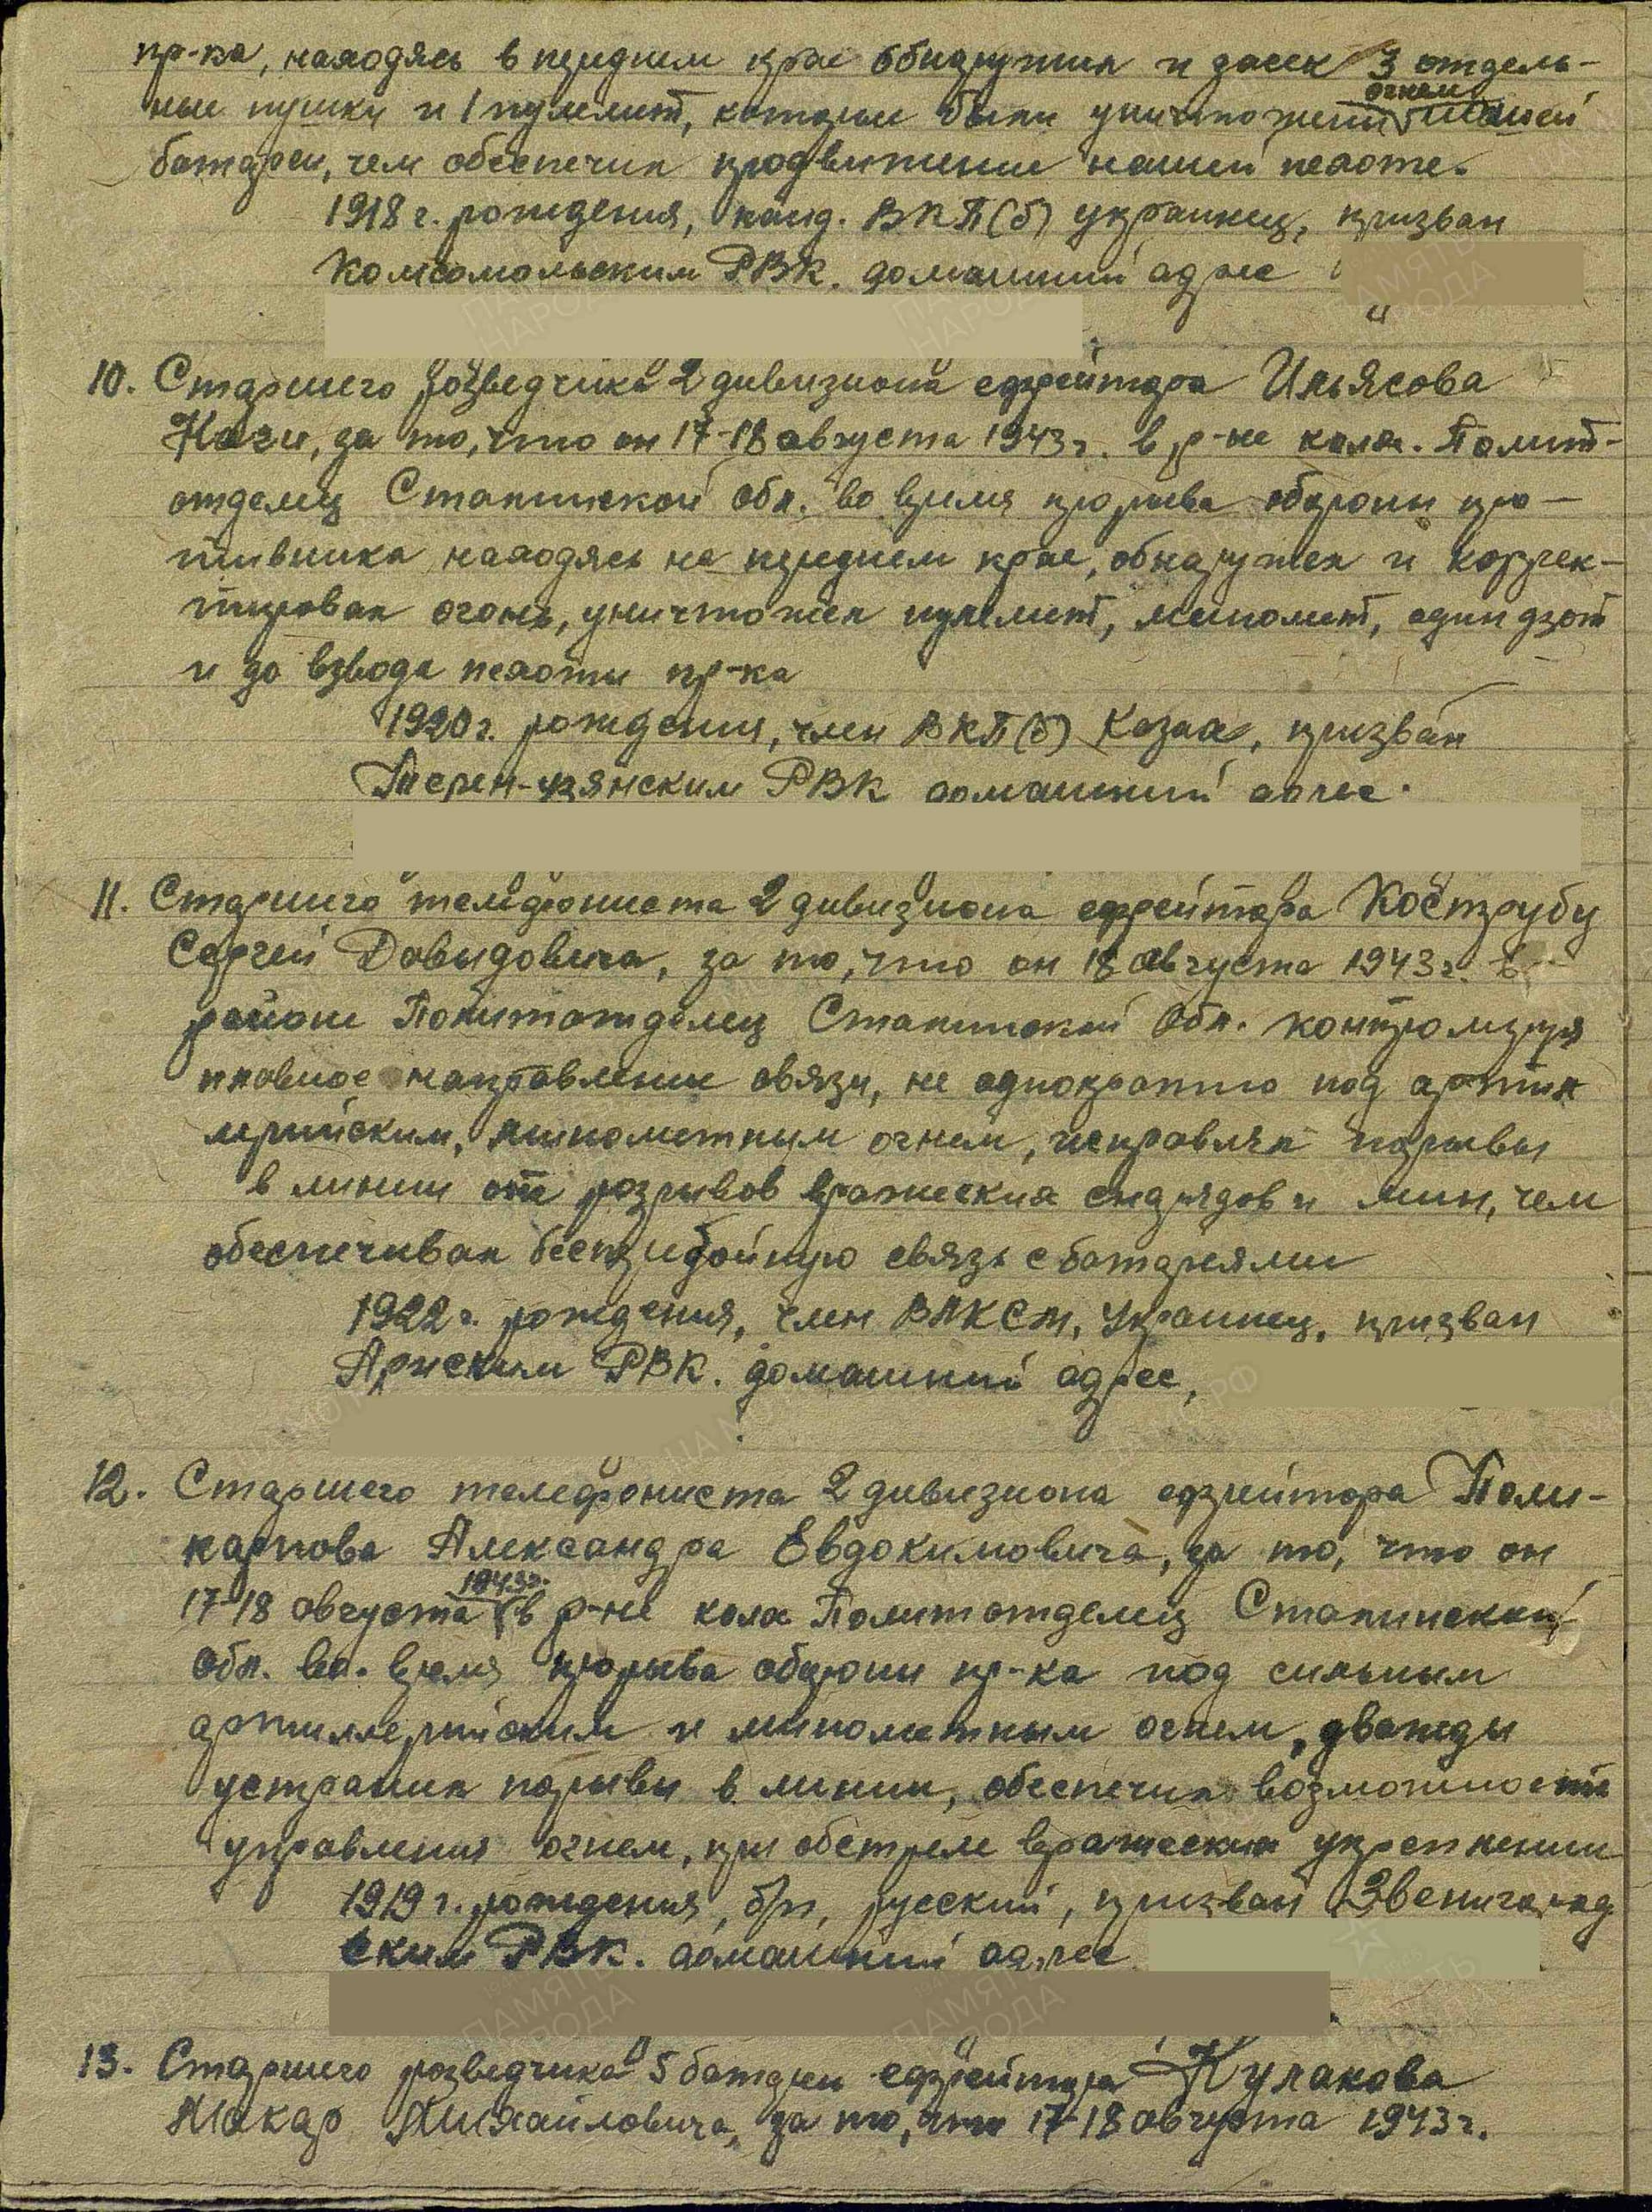 пр-ка, находясь в переднем крае обнаружил и засек 3 отдель-
ные пушки и 1 пулемет, которые были уничтожены огнем нашей
батареи, чем обеспечил продвижение нашей пехоте.
1918 г. рождения, канд. ВКП(б) украинец, призван
Комсомольским РВК. домашний адрес
10. Старшего разведчика 2 дивизиона ефрейтора Ильясова
Наги, за то, что он 17-18 августа 1943 г. в р-не колх. Полит-
отделец Сталинской обл. во время прорыва обороны про-
тивника находясь на переднем крае, обнаружил и коррек-
тировал огонь, уничтожил пулемет, миномет, один дзот
и до взвода пехоты пр-ка
1920 г. рождения, член ВКП(б) Казах, призван
Терен-узянским РВК домашний адрес.
11. Старшего телефониста 2 дивизиона ефрейтора Кострубу
Сергей Давыдовича, за то, что он 18 августа 1943 г. в
районе Политотделец Сталинской Обл. контролируя
направление связи, не однократно под артил
лерийским, минометным огнем, исправлял порывы
в линии от разрывов вражеских снарядов и мин, чем
обеспечивал бесперебойную связь с батареями
1922 г. рождения, член ВЛКСМ, Украинец, призван
Арысским РВК. домашний адрес,
12. Старшего телефониста 2 дивизиона ефрейтора Поли-
карпова Александра Евдокимовича, за то, что он
17-18 августа 1943 г. в р-не колх Политотделец Сталинской
Обл. во. время прорыва обороны пр-ка под сильным
артиллерийским и минометным огнем, дважды
устранил порывы в линии, обеспечил возможность
управления огнем, при обстреле вражеских укреплении
1919 г. рождения, б/п, русский, призван Звенигород
ским РВК. домашний адрес
13. Старшего разведчика 5 батареи ефрейтора Кулакова
Макар Михайловича, за то, что 17-18 августа 1943 г.